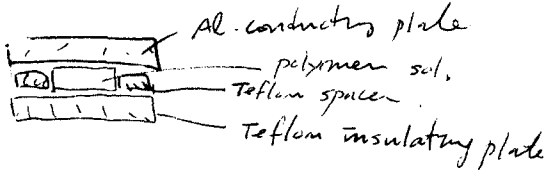 Al. conducting plate
polymer sol.
Teflon spacer
Teflon insulating plate